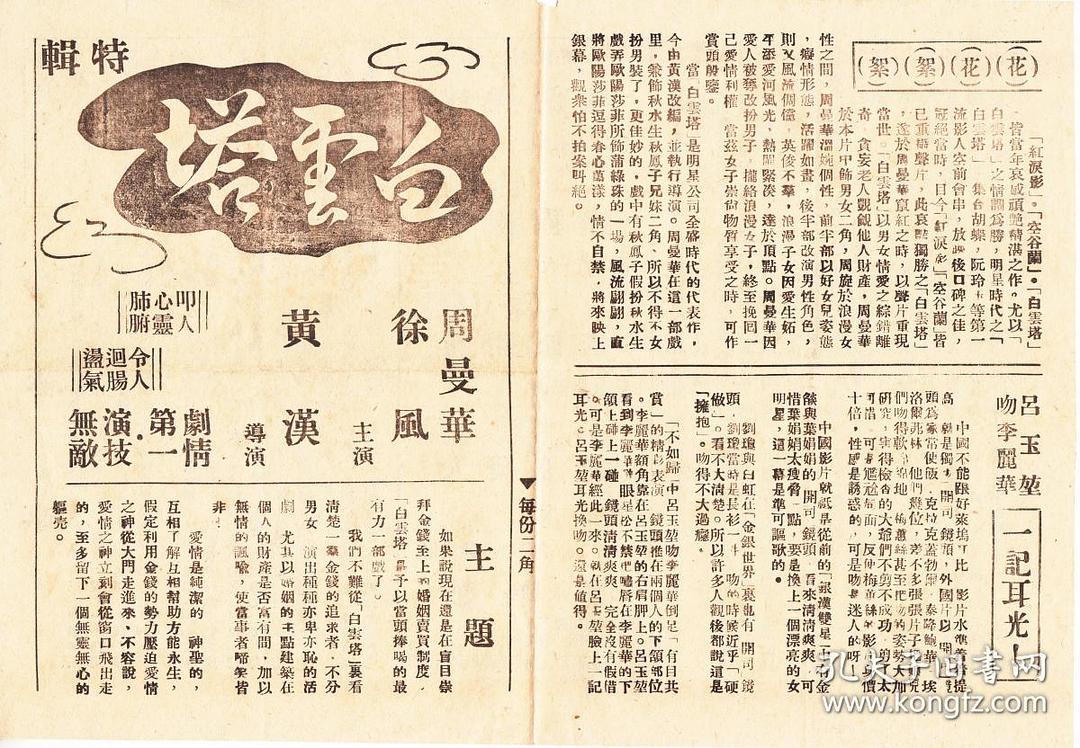 (花)(花)(絮)(絮)
「紅淚影」。「空谷蘭」。「白雲塔」
皆當年哀感頑艷精湛之作。尤以「
白雲塔」之情調爲勝，明星時代之「
白雲塔」，集合胡蝶，阮玲玉等第一
流影人空前會串，放映後口碑之佳，
冠絕當時，日今「紅淚影」「空谷蘭」皆
已重攝聲片，此哀艷獨勝之「白雲塔」
，遂於周曼華竄紅之時，以聲片重現
當世。「白雲塔」以男女情愛之綜錯離
奇，貪妄老人覬覦他人財產，周曼華
於本片中飾男女二角，周旋於浪漫女
性之間，周曼華溫婉個性，前半部以好女兒姿態
，癡情形態，活躍如畫，後半部改演男性角色，
則又風流倜儻，英俊不羣，浪漫子女因愛生妬，
平添愛河風光，熱鬧緊湊，達於頂點。周曼華因
愛人被奪改扮男子，攏絡浪漫女子，終至挽囘一
己愛情利權，當茲女子崇尚物質享受之時，可作
賞頭殷鑒。
當「白雲塔」是明星公司全盛時代的代表作，
今由黃漢改編，並執行導演。周曼華在這一部戲
里，兼飾秋水生秋鳳子兄妹二角、所以不得不女
扮男裝了，更佳妙的，戲中有秋鳳子假扮秋水生
戲弄歐陽莎菲所飾蒲綠珠的一場，風流翩翩，直
將歐陽莎菲逗得春心萬漾，情不自禁，將來映上
銀幕，觀衆怕不拍案叫絕。
呂玉堃
吻李麗華
一記耳光！
中國不能跟好萊塢
就是獨
中國影片就祇是從前的「銀漢雙星」
燄與葉娟娟的「開司」鏡頭，看來清清爽爽，可
惜葉娟娟太瘦脊一點，要是換上一個漂亮的女
明星，這一幕是準可謳歌的。
劉瓊與白虹在「金銀世界」裏也有「開司」鏡
頭，劉瓊當時是長衫一件，吻的時候近乎「硬
做」。看不大清楚。所以許多人觀後都說這是
「擁抱」。吻得不大過癮。
「不如歸」中呂玉堃吻李麗華倒足「有目共
賞」的精彩表演，鏡頭推在兩個人的下頷部位
。李麗華額角靠在呂玉堃的右肩胛上。呂玉堃
看到李麗華
領上碰上一碰，鏡頭清清爽爽，完全沒有假借
。可是李麗華經此一來。就在呂玉堃臉上一記
耳光。呂玉堃耳光換吻。還是值得。
▼每份二角
特輯
白雲塔
周曼華
徐風
主演
黃漢
導演
叩人
心靈
肺腑
令人
迴腸
盪氣
劇情
第一
·
演技
無敵
主題
如果說現在還是在盲目崇
拜金錢至上的婚姻賣買制度，
「白雲塔」是予以當頭捧喝的最
有力一部戲了。
我們不難從「白雲塔」裏看
清楚一羣金錢的追求者，不分
男女，演出種種亦卑亦恥的活
劇，尤其以婚姻的主點建築在
個人的財產是否富有間，加以
無情的諷喩，使當事者啼笑皆
非。
愛情是純潔的，神聖的，
互相了解互相幫助方能永生，
假定利用金錢的勢力壓迫愛情
之神從大門走進來，不容說，
愛情之神立刻會從窗口飛出走
的，至多留下一個無靈無心的
軀壳。
孔夫子旧书网
www.kongfz.com